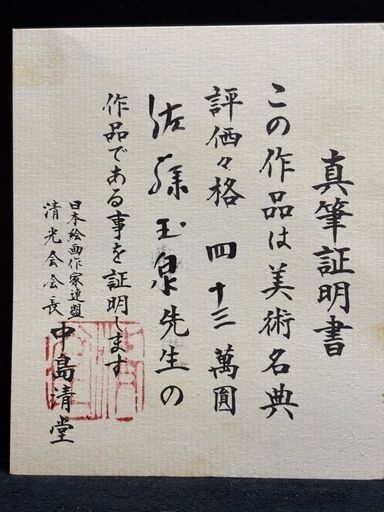 真筆証明書
この作品は美術名典
評価々格 四十三萬圓
佐藤玉泉先生の
作品である事を証明します
日本絵画作家連盟
清光会会長 中島清堂